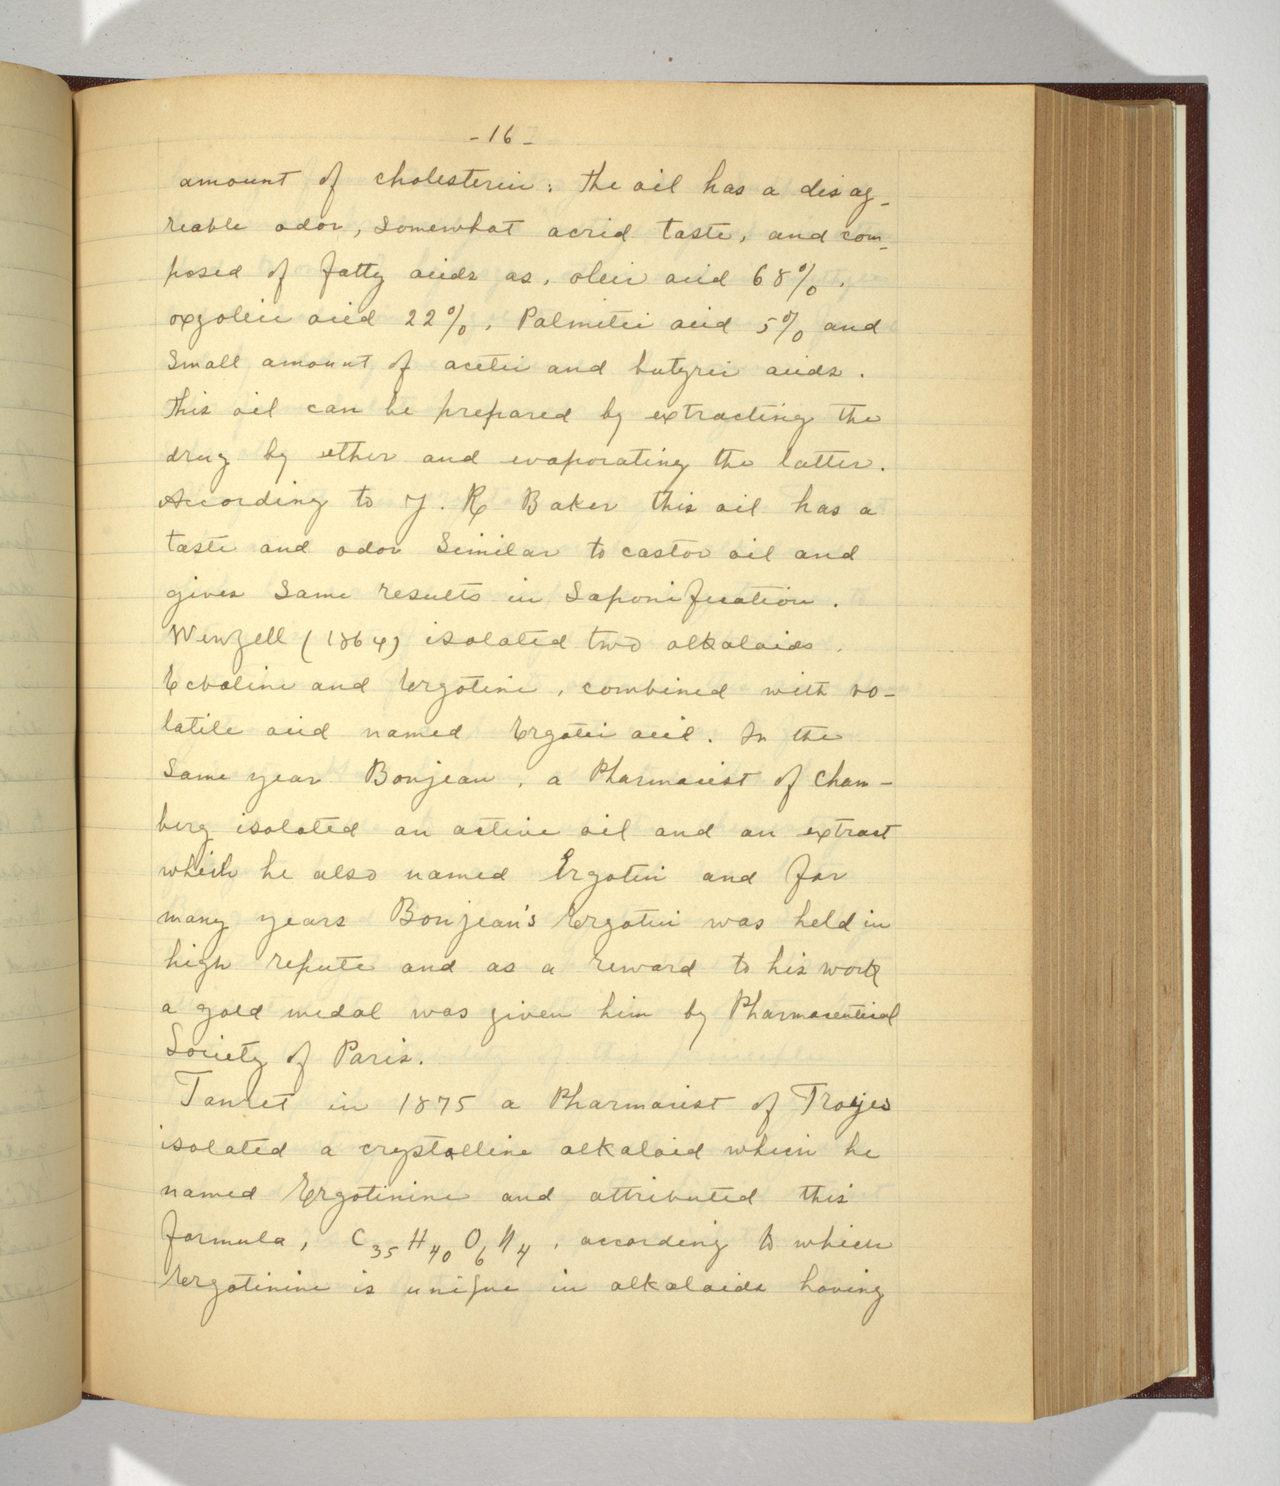 - 16 -
amount of cholesterin; the oil has a disag-
reable odor, somewhat acrid taste, and com-
posed of fatty acids as, oleic acid 68%,
oxyoleic acid 22%, Palmitic acid 5% and
small amount of acetic and butyric acids.
This oil can be prepared by extracting the
drug by ether and evaporating the latter.
According to J. R Baker this oil has a
taste and odor similar to castor oil and
gives same results in saponification.
Wenzell (1864) isolated two alkaloids,
Ecboline and Ergotine, combined with vo-
latile acid named Ergotic acid. In the
same year Bonjean, a Pharmacist of Cham-
berg isolated an active oil and an extract
which he also named Ergotin and for
many years Bonjean's Ergotin was held in
high repute and as a reward to his work
a gold medal was given him by Pharmaceutical
Society of Paris.
Tanret in 1875 a Pharmacist of Troyes
isolated a crystalline alkaloid which he
named Ergotinine and attributed this
formula, C35 H40 O6 N4, according to which
Ergotinine is unique in alkaloids having